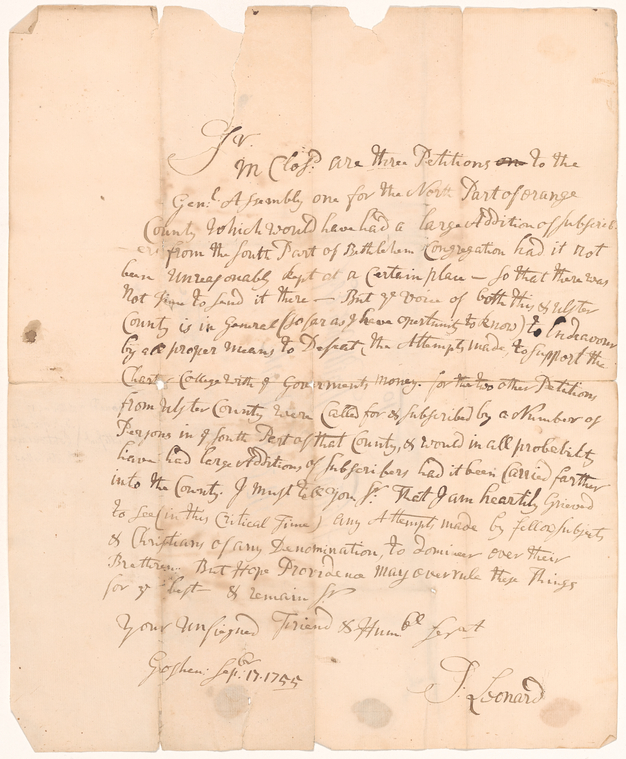 Sr.
In Clos'd are three Petitions on to the
Genl. Assembly one for the North Part of orange
County Which would have had a large Addition of subscrib
ers from the South Part of Bethlehem Congregation had it not
been Unreasonably kept at a Certain place — So that there was
Not time to send it there — But ye voice of both this & Ulster
County is in General (so far as I have oportunity to know) to Endeavour
by all proper means to Defeat the Attempts made, to support the
Charter College with ye Goverments money. for the two other Petitions
from Ulster County were Called for & subscribed by a Number of
Persons in ye South Part of that County, & would in all probability
have had large Additions of subscribers had it been Carried farther
into the County. I must tell you Sr. That I am heartily Grieved
to see (in this Critical Time) any Attempts made by fellow subjects
& Christians of any Denomination, to domineer over their
Brethren. But Hope Providence may overrule these Things
for ye best — & remain Sr
Your Unfeigned Friend & Humbl servt
Goshen: Sepbr. 17. 1755
S. Leonard